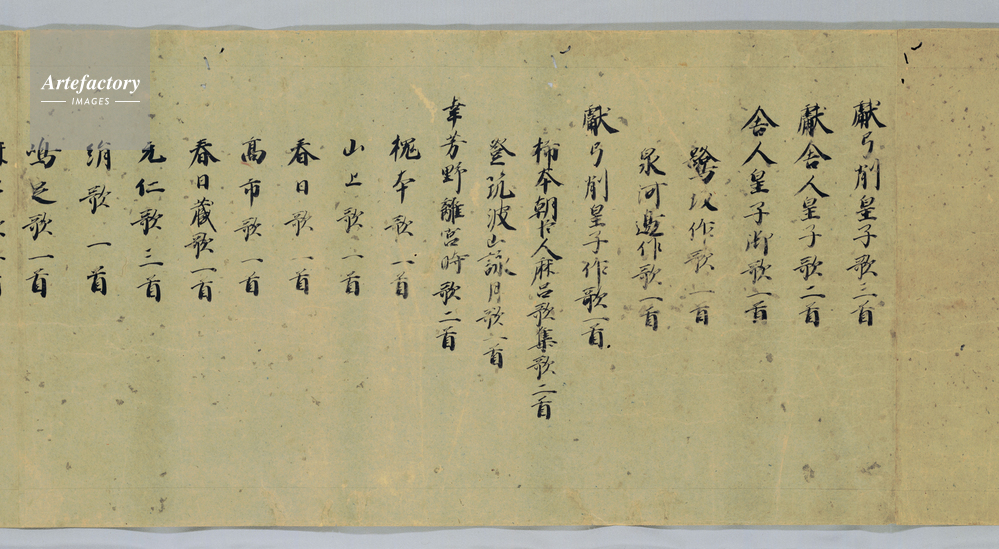 獻弓削皇子歌三首
獻舍人皇子歌二首
舍人皇子御歌一首
鷺坂作歌一首
泉河邊作歌一首
獻弓削皇子作歌一首
柿本朝臣人麻呂歌集歌二首
登筑波山詠月歌一首
幸芳野離宮時歌二首
槐本歌一首
山上歌一首
春日歌一首
高市歌一首
春日蔵歌一首
元仁歌三首
絹歌一首
嶋足歌一首
Artefactory
IMAGES